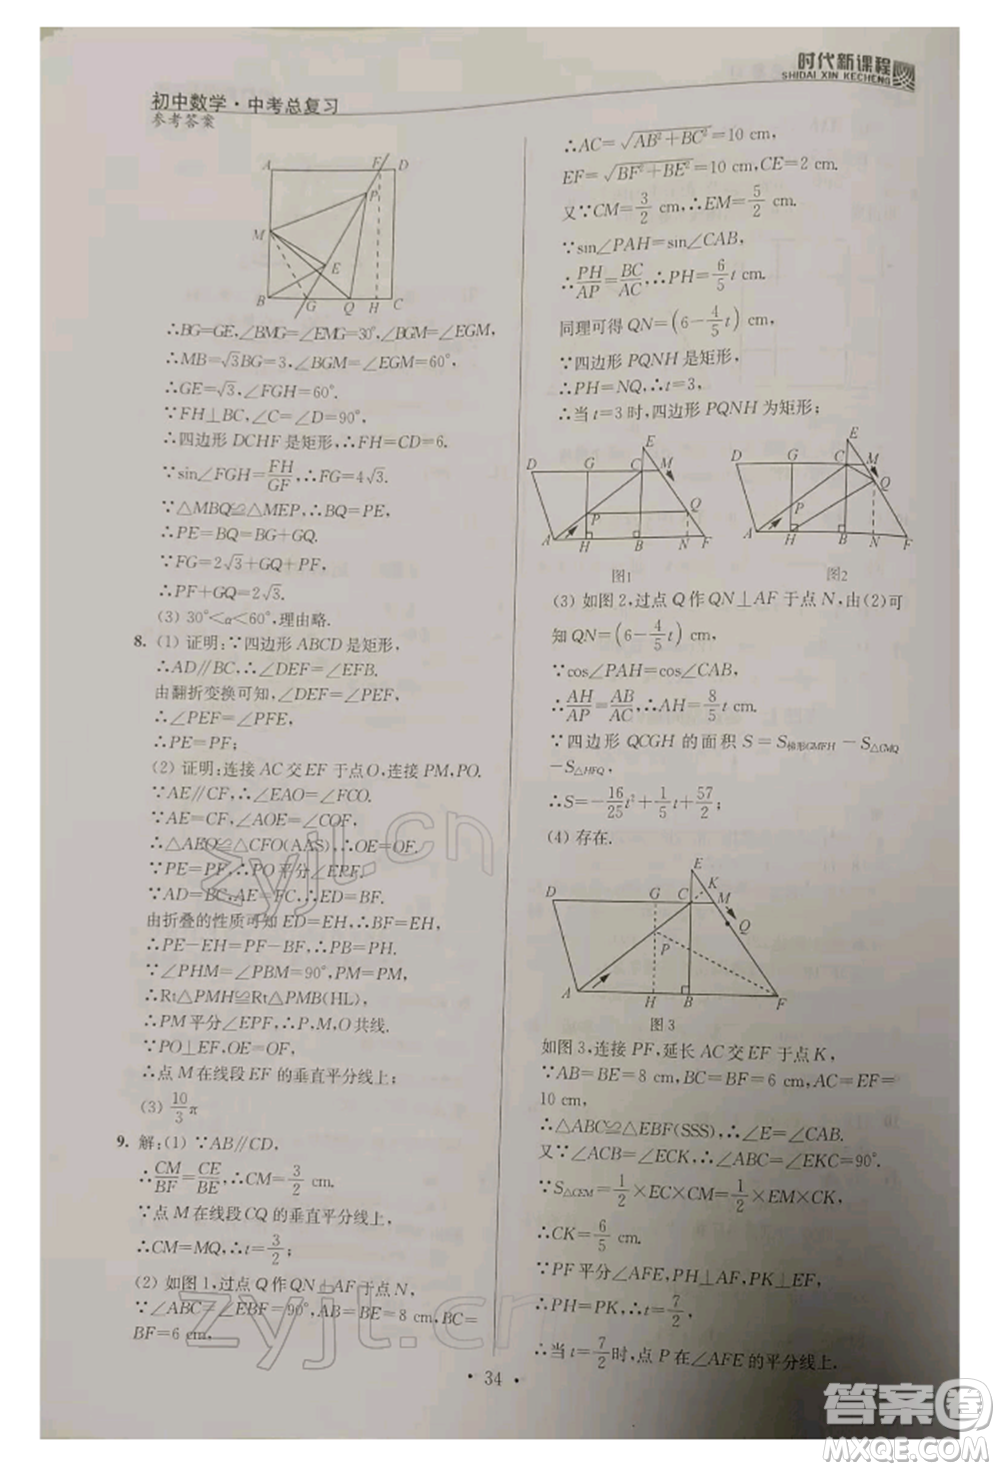 时代新课程
SHIDAI XIN KECHENG
初中数学·中考总复习
参考答案
A F D
P
M
E
B G Q H C
∴BG=GE,∠BMG=∠EMG=30°,∠BGM=∠EGM,
∴MB=√3BG=3,∠BGM=∠EGM=60°,
∴GE=√3,∠FGH=60°.
∵FH⊥BC,∠C=∠D=90°,
∴四边形 DCHF 是矩形,∴FH=CD=6.
∵sin∠FGH=FH/GF,∴FG=4√3.
∵△MBQ≌△MEP,∴BQ=PE,
∴PE=BQ=BG+GQ.
∵FG=2√3+PE+GQ,
∴PF+GQ=2√3.
(3) 30°<α<60°,理由略.
8. (1) 证明:∵四边形 ABCD 是矩形,
∴AD∥BC,∴∠DEF=∠EFB.
由翻折变换可知,∠DEF=∠PEF,
∴∠PEF=∠PFE,
∴PE=PF;
(2) 证明:连接 AC 交 EF 于点 O,连接 PM,PO.
∵AE∥CF,∴∠EAO=∠FCO.
∵AE=CF,∠AOE=∠COF,
∴△AEO≌△CFO(AAS),∴OE=OF.
∵PE=PF,∴PO 平分∠EPF.
∵AD=BC,AE=FC,∴ED=BF.
由折叠的性质可知 ED=EH,∴BF=EH,
∴PE-EH=PF-BF,∴PB=PH.
∵∠PHM=∠PBM=90°,PM=PM,
∴Rt△PMH≌Rt△PMB(HL),
∴PM 平分∠EPF,∴P,M,O 共线.
∵PO⊥EF,OE=OF,
∴点 M 在线段 EF 的垂直平分线上;
(3) 10/3 π
9. 解:(1) ∵AB∥CD,
∴CM/BF=CE/BE,∴CM=3/2 cm.
∵点 M 在线段 CQ 的垂直平分线上,
∴CM=MQ,∴t=3/2;
(2) 如图 1,过点 Q 作 QN⊥AF 于点 N,
∵∠ABC=∠EBF=90°,AB=BE=8 cm,BC=
BF=6 cm,
∴AC=√(AB²+BC²)=10 cm,
EF=√(BF²+BE²)=10 cm,CE=2 cm.
又∵CM=3/2 cm,∴EM=5/2 cm.
∵sin∠PAH=sin∠CAB,
∴PH/AP=BC/AC,∴PH=6/5 t cm.
同理可得 QN=(6-4/5 t) cm,
∵四边形 PQNH 是矩形,
∴PH=NQ,∴t=3,
∴当 t=3 时,四边形 PQNH 为矩形;
E
D G C M
P Q
A H B N F
图1
E
D G C M
Q
P
A H B N F
图2
(3) 如图 2,过点 Q 作 QN⊥AF 于点 N,由(2)可
知 QN=(6-4/5 t) cm,
∵cos∠PAH=cos∠CAB,
∴AH/AP=AB/AC,∴AH=8/5 t cm.
∵四边形 QCGH 的面积 S=S梯形GMFH-S△CMQ
-S△HFQ,
∴S=-16/25 t²+1/5 t+57/2;
(4) 存在.
E
K
D G C M
Q
P
A H B F
图 3
如图 3,连接 PF,延长 AC 交 EF 于点 K,
∵AB=BE=8 cm,BC=BF=6 cm,AC=EF=
10 cm,
∴△ABC≌△EBF(SSS),∴∠E=∠CAB.
又∵∠ACB=∠ECK,∴∠ABC=∠EKC=90°.
∵S△CEM=1/2×EC×CM=1/2×EM×CK,
∴CK=6/5 cm.
∵PF 平分∠AFE,PH⊥AF,PK⊥EF,
∴PH=PK,∴t=7/2,
∴当 t=7/2 时,点 P 在∠AFE 的平分线上.
· 34 ·
zyjl.cn
zyjl.cn
答案卷
MXQE.COM